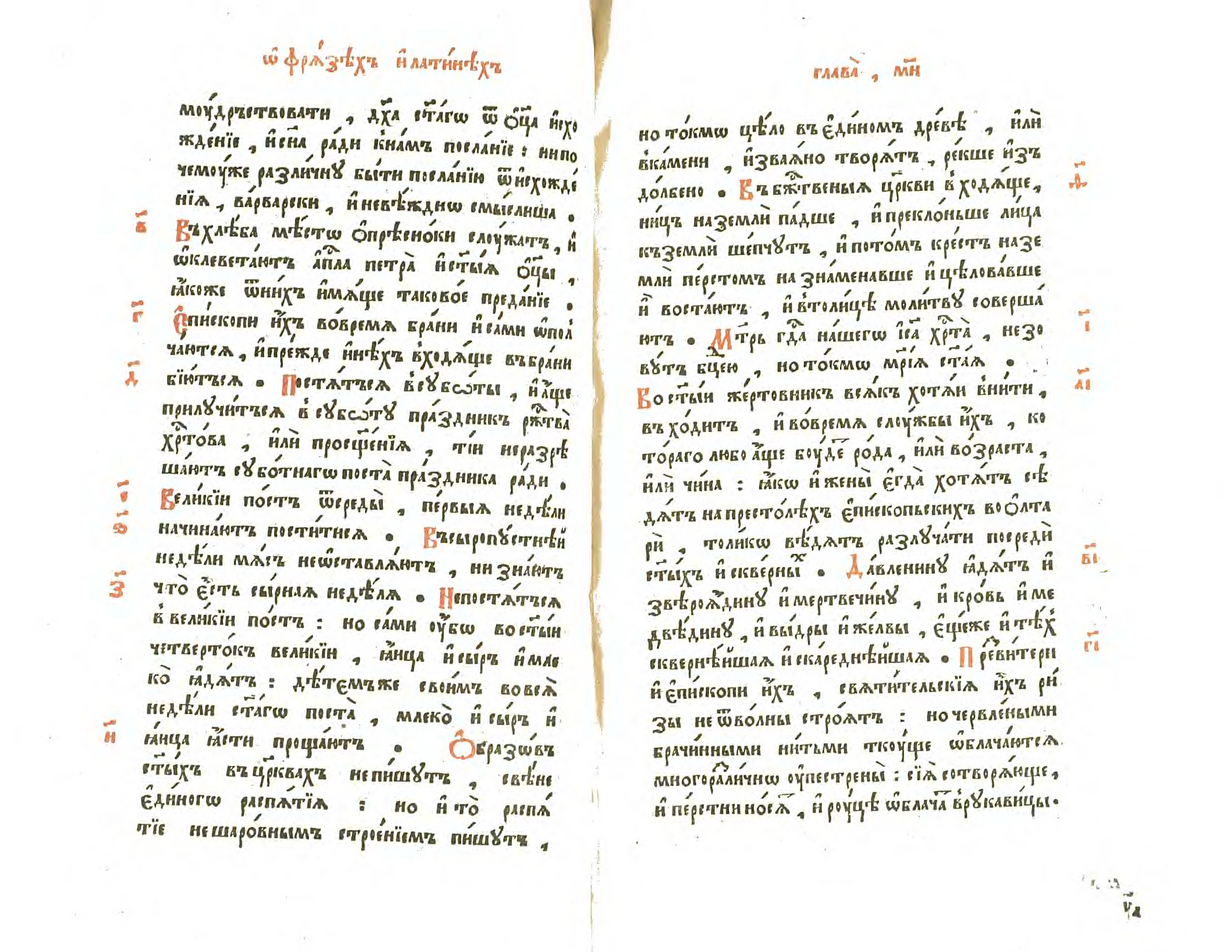 ѡ҆ фрѧ́зѣхъ и҆ лати́нѣхъ
моу́дръствовати , дх҃а ст҃а́гѡ ѿ ѻ҆ц҃а и҆схо
жде́нїе , и҆ сн҃а ра́ди к̾на́мъ посла́нїе : ни по
чемоу́же разли́чнꙋ бы́ти посла́нїю ѿ и҆схожде́
нїѧ , ва́рварски , и҆ невѣ́жднѡ смы́слиша .
в҃
Въ хлѣ́ба мѣ́стѡ ѻ҆прѣсно́ки слоу́жатъ , и҆
ѡ҆клевета́ютъ а҆пⷭ҇ла петра̀ и҆ ст҃ы́ѧ ѻ҆ц҃ы ,
ꙗ҆́коже ѿ ни́хъ и҆мѧ́ще таково́е преда́нїе .
г҃
Є҆пи́скопи и҆́хъ во́время бра́ни и҆ са́ми ѡ҆пол
ча́ются , и҆ пре́жде и҆нѣ́хъ в̾ходѧ́ще въ бра́ни
д҃
бїю́тъсѧ . Постѧ́тъсѧ в̾сꙋбѡ́ты , и҆ а҆́ще
прилꙋчи́тъсѧ в̾ сꙋбѡ́тꙋ пра́здникъ ржⷭ҇тва̀
хрⷭ҇то́ва , и҆лѝ просщ҃е́нїѧ , ті́и не разрѣ
ша́ютъ сꙋбо́тнагѡ поста̀ пра́здника ра́ди .
є҃
Вели́кїи по́стъ ѿ среды̀ , пе́рвыѧ недѣ́ли
ѕ҃
начина́ютъ пости́тисѧ . Въ сыропꙋ́стнѣй
недѣ́ли мѧ́съ не ѡ҆ставлѧ́ютъ , ни зна́ютъ
з҃
что̀ є҆́сть сы́рнаѧ недѣ́лѧ . Не постѧ́тъсѧ
в̾ вели́кїи по́стъ : но са́ми оу҆́бѡ во ст҃ы́и
четверто́къ вели́кїи , ꙗ҆и́ца и҆ сы́ръ и҆ мле
ко̀ ꙗ҆дѧ́тъ : дѣ́темъже свои́мъ во всѧ̀
недѣ́ли ст҃а́гѡ поста̀ , млеко̀ и҆ сы́ръ и҆
и҃
ꙗ҆и́ца ꙗ҆́сти проща́ютъ . Ѻ҆́бразѡвъ
ст҃ы́хъ въ цр҃квахъ не пи́шꙋтъ , свѣ́не
є҆ди́ногѡ распѧ́тїѧ : но и҆ то̀ распѧ́
тїе не шаро́внымъ строе́нїемъ пи́шꙋтъ ,
глава̀ , м҃и
но то́кмѡ цѣ́ло въ є҆ди́номъ дре́вѣ , и҆лѝ
в̾ка́мени , и҆зваѧ́но творѧ́тъ , ре́кше и҆зъ
ѳ҃
до́лбено . Въ бжⷭ҇твеныѧ цр҃кви в̾ходѧ́ще ,
ни́цъ на землѝ па́дше , и҆ прекло́ньше лица̀
къ землѝ ше́пчꙋтъ , и҆ пото́мъ кре́стъ на зе
млѝ пе́рстомъ на зна́менавше и҆ цѣлова́вше
и҆̀ востаю́тъ , и҆ в̾толи́цѣ моли́твꙋ соверша́
і҃
ютъ . Мт҃рь гдⷭ҇а на́шегѡ і҆с҃а хрⷭ҇та̀ , не зо
вꙋ́тъ бц҃ею , но то́кмѡ мр҃і́ѧ ст҃а́ѧ .
а҃і
Во ст҃ы́и же́ртовникъ всѧ́къ хотѧ́и вни́ти ,
въхо́дитъ , и҆ во́время слоу́жбы и҆́хъ , ко
то́раго любо а҆́ще боу́де ро́да , и҆лѝ во́зраста ,
и҆лѝ чи́на : ꙗ҆́кѡ и҆ жены̀ є҆гда̀ хотѧ́тъ сѣ
дѧ́тъ на престо́лѣхъ є҆пи́скопьскихъ во ѻ҆лта
рѝ , толи́кѡ вѣ́дѧтъ разлꙋча́ти посредѝ
в҃і
ст҃ы́хъ и҆ скве́рныⷯ . Да́вленинꙋ ꙗ҆дѧ́тъ и҆
звѣроѧ́динꙋ и҆ мертвечи́нꙋ , и҆ кро́вь и҆ ме
двѣ́динꙋ , и҆ вы́дры и҆ же́лвы , є҆ще́же и҆ тѣⷯ
г҃і
сквернѣ́йшаѧ и҆ скареднѣ́йшаѧ . Пре́звитери
и҆ є҆пи́скопи и҆́хъ , свѧти́тельскїѧ и҆́хъ ри́
зы не ѿ во́лны строѧ́тъ : но червле́ными
брачи́нными ни́тьми ткоу́ще ѡ҆блача́ютсѧ
многоразли́чнѡ оу҆пестрены̀ : сїѧ̀ сотворѧ́юще ,
и҆ пе́рстни но́сѧⷮ , и҆ роу́цѣ ѡ҆блача́ⷮ в̾рꙋкави́цы .